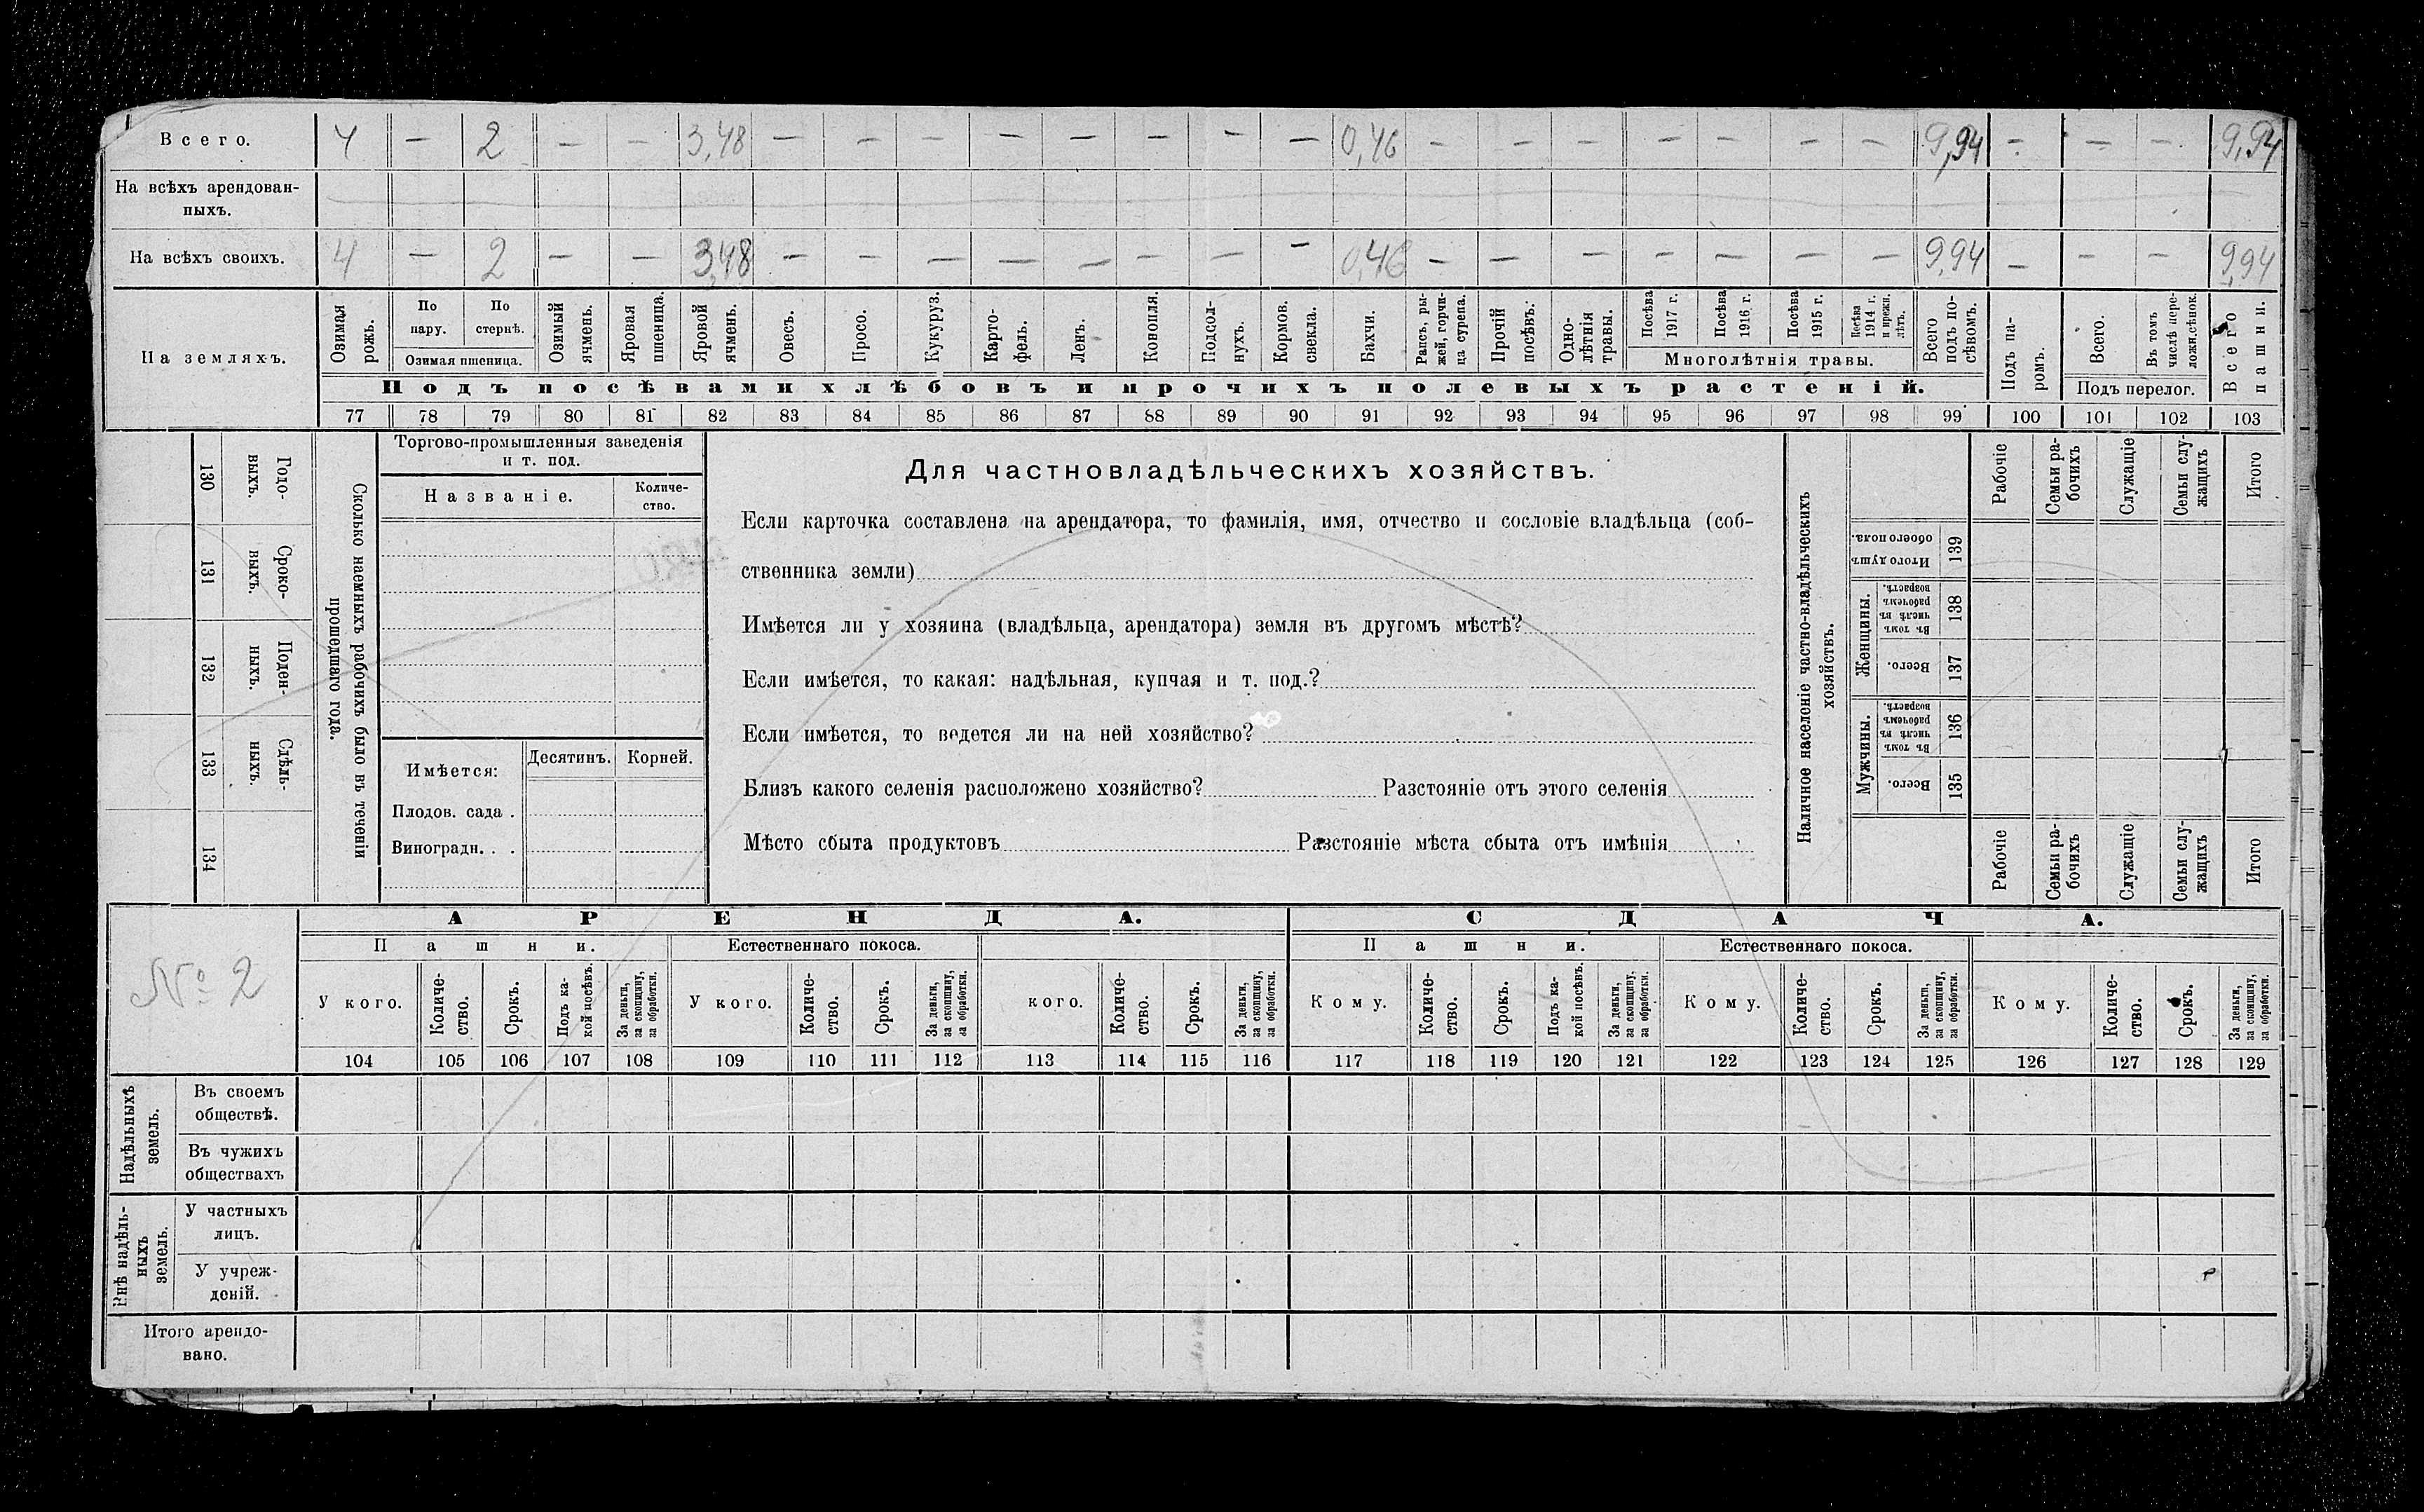 Всего. 4 — 2 — — 3,48 — — — — — — — — 0,46 — — — — — — — 9,94 — — — 9,94
На всѣхъ арендован-
ныхъ.
На всѣхъ своихъ. 4 — 2 — — 3,48 — — — — — — — — 0,46 — — — — — — — 9,94 — — — 9,94
На земляхъ.
Озимая рожь.
По пару.
По стернѣ.
Озимая пшеница.
Озимый ячмень.
Яровая пшеница.
Яровой ячмень.
Овесъ.
Просо.
Кукуруз.
Карто-
фель.
Ленъ.
Конопля.
Подсол-
нухъ.
Кормов.
свекла.
Бахчи.
Рапсъ, ры-
жей, горчи-
ца сурепа.
Прочій
посѣвъ.
Одно-
лѣтнія
травы.
Посѣва
1917 г.
Посѣва
1916 г.
Посѣва
1915 г.
Посѣва
1914 г.
и прежн.
лѣтъ.
Многолѣтнія травы.
Всего
подъ по-
сѣвомъ.
Подъ па-
ромъ.
Всего.
Въ томъ
числѣ пере-
ложн.сѣнок.
Подъ перелог.
Всего
пашни.
Подъ посѣвами хлѣбовъ и прочихъ полевыхъ растеній.
77 78 79 80 81 82 83 84 85 86 87 88 89 90 91 92 93 94 95 96 97 98 99 100 101 102 103
130 Годо-
выхъ.
131 Сроко-
выхъ.
132 Поден-
ныхъ.
133 Сдѣль-
ныхъ.
134
Сколько наемныхъ рабочихъ было въ теченіи
прошедшаго года.
Торгово-промышленныя заведенія
и т. под.
Названіе.
Количе-
ство.
Имѣется:
Десятинъ. Корней.
Плодов. сада .
Виноградн. . .
Для частновладѣльческихъ хозяйствъ.
Если карточка составлена на арендатора, то фамилія, имя, отчество и сословіе владѣльца (соб-
ственника земли)
Имѣется ли у хозяина (владѣльца, арендатора) земля въ другомъ мѣстѣ?
Если имѣется, то какая: надѣльная, купчая и т. под.?
Если имѣется, то ведется ли на ней хозяйство?
Близъ какого селенія расположено хозяйство? Разстояніе отъ этого селенія
Мѣсто сбыта продуктовъ Разстояніе мѣста сбыта отъ имѣнія
Наличное населеніе частно-владѣльческихъ
хозяйствъ.
Рабочіе
Семьи ра-
бочихъ
Служащіе
Семьи слу-
жащихъ
Итого
Итого душъ
обоего пола.
139
Женщины.
Въ томъ
числѣ въ
рабочемъ
возрастѣ.
138
Всего.
137
Мужчины.
Въ томъ
числѣ въ
рабочемъ
возрастѣ.
136
Всего.
135
Рабочіе
Семьи ра-
бочихъ
Служащіе
Семьи слу-
жащихъ
Итого
№ 2
АРЕНДА. СДАЧА.
Пашни. Естественнаго покоса. Пашни. Естественнаго покоса.
У кого.
Количе-
ство.
Срокъ.
Подъ ка-
кой посѣвъ.
За деньги,
за скопщину,
за обработки.
У кого.
Количе-
ство.
Срокъ.
За деньги,
за скопщину,
за обработки.
кого.
Количе-
ство.
Срокъ.
За деньги,
за скопщину,
за обработки.
Кому.
Количе-
ство.
Срокъ.
Подъ ка-
кой посѣвъ.
За деньги,
за скопщину,
за обработки.
Кому.
Количе-
ство.
Срокъ.
За деньги,
за скопщину,
за обработки.
Кому.
Количе-
ство.
Срокъ.
За деньги,
за скопщину,
за обработки.
104 105 106 107 108 109 110 111 112 113 114 115 116 117 118 119 120 121 122 123 124 125 126 127 128 129
Надѣльныхъ
земель.
Въ своемъ
обществѣ.
Въ чужихъ
обществахъ
Внѣ надѣль-
ныхъ
земель.
У частныхъ
лицъ.
У учреж-
деній.
Итого арендо-
вано.